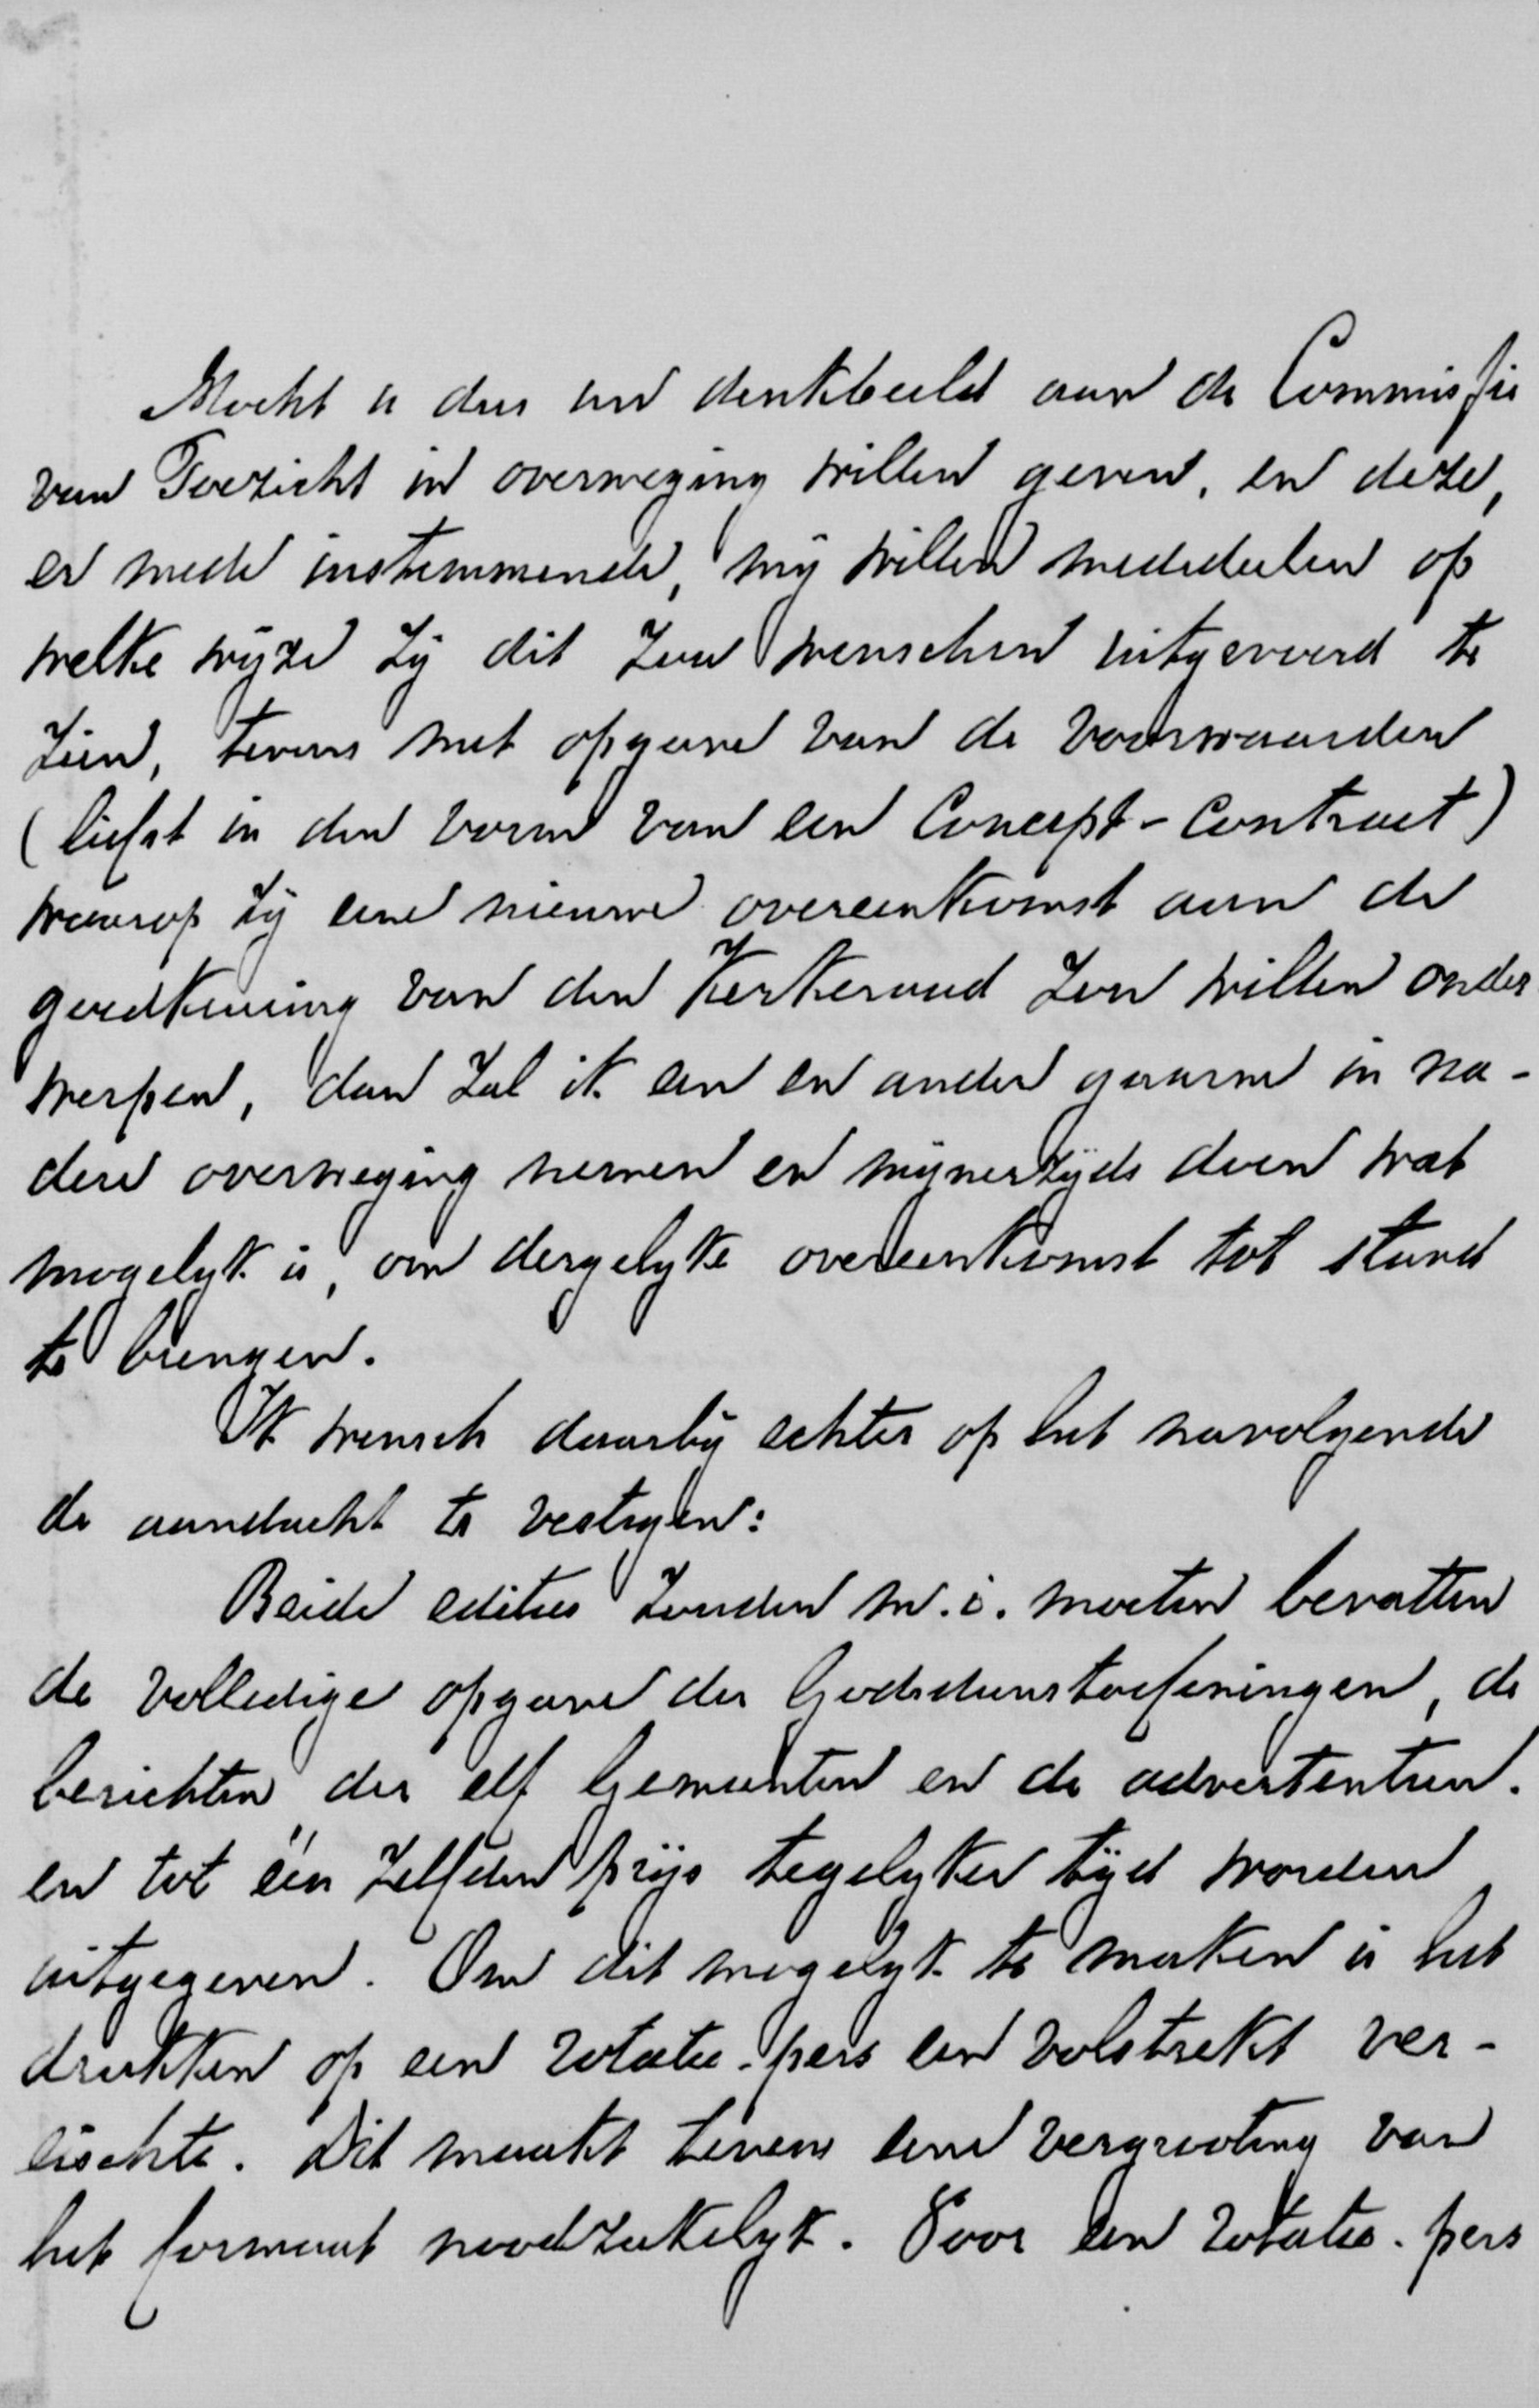 Mocht u dus uw denkbeeld aan de Commissie
van Toezicht in overweging willen geven, en deze,
er mede instemmende, mij willen mededeelen op
welke wijze zij dit zou wenschen uitgevoerd te
zien, tevens met opgave van de voorwaarden
(liefst in den vorm van een Concept-Contract)
waarop zij eene nieuwe overeenkomst aan de
goedkeuring van den Kerkeraad zou willen onder
werpen, dan zal ik een en ander gaarne in na-
dere overweging nemen en mijnerzijds doen wat
mogelijk is, om dergelijke overeenkomst tot stand
te brengen.
Ik wensch daarbij echter op het navolgende
de aandacht te vestigen:
Beide edities zouden m.i. moeten bevatten
de volledige opgave der Godsdienstoefeningen, de
berichten der elf Gemeenten en de advertentien.
en tot één zelfden prijs tegelijker tijd worden
uitgegeven. Om dit mogelijk te maken is het
drukken op een rotatie-pers een volstrekt ver-
eischte. Dit maakt tevens eene vergrooting van
het formaat noodzakelijk. Voor een rotatie-pers